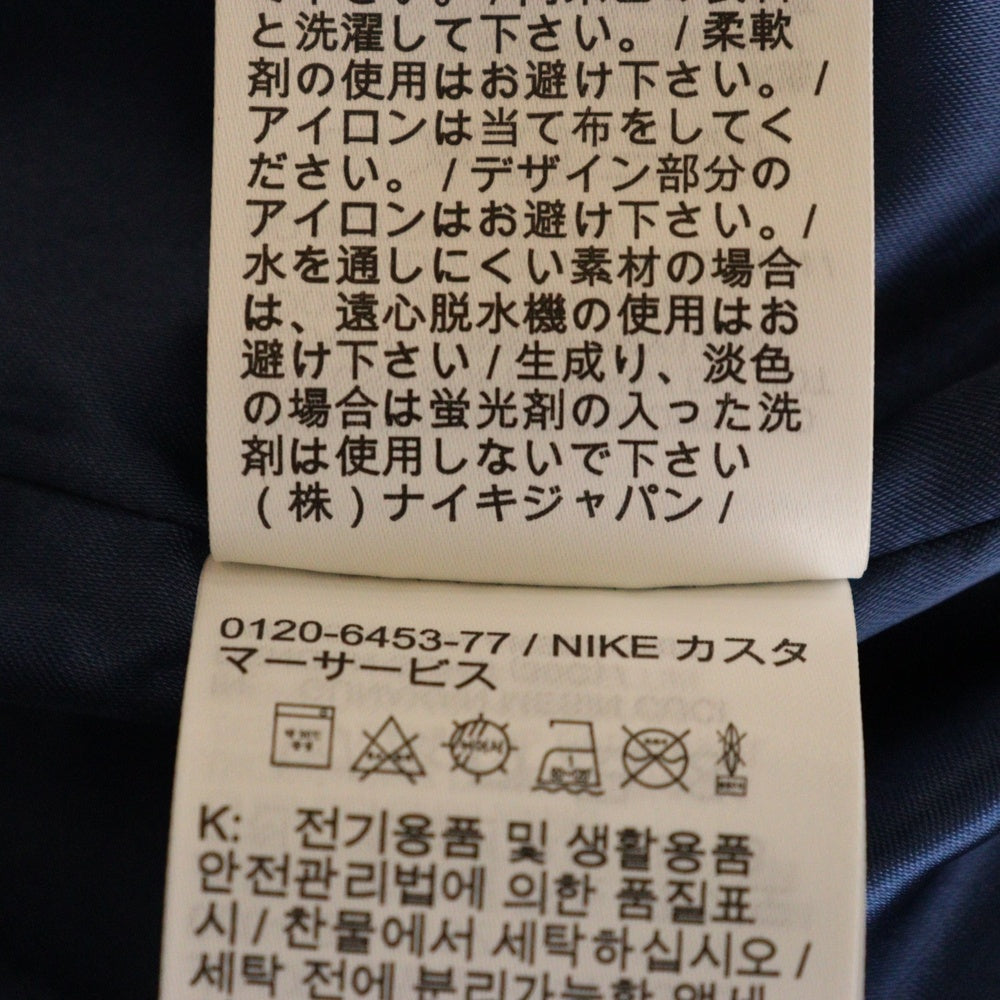 と洗濯して下さい。 / 柔軟
剤の使用はお避け下さい。 /
アイロンは当て布をしてく
ださい。 / デザイン部分の
アイロンはお避け下さい。 /
水を通しにくい素材の場合
は、遠心脱水機の使用はお
避け下さい / 生成り、淡色
の場合は蛍光剤の入った洗
剤は使用しないで下さい
(株)ナイキジャパン /
0120-6453-77 / NIKE カスタ
マーサービス
K: 전기용품 및 생활용품
안전관리법에 의한 품질표
시 / 찬물에서 세탁하십시오 /
세탁 전에 분리가능한